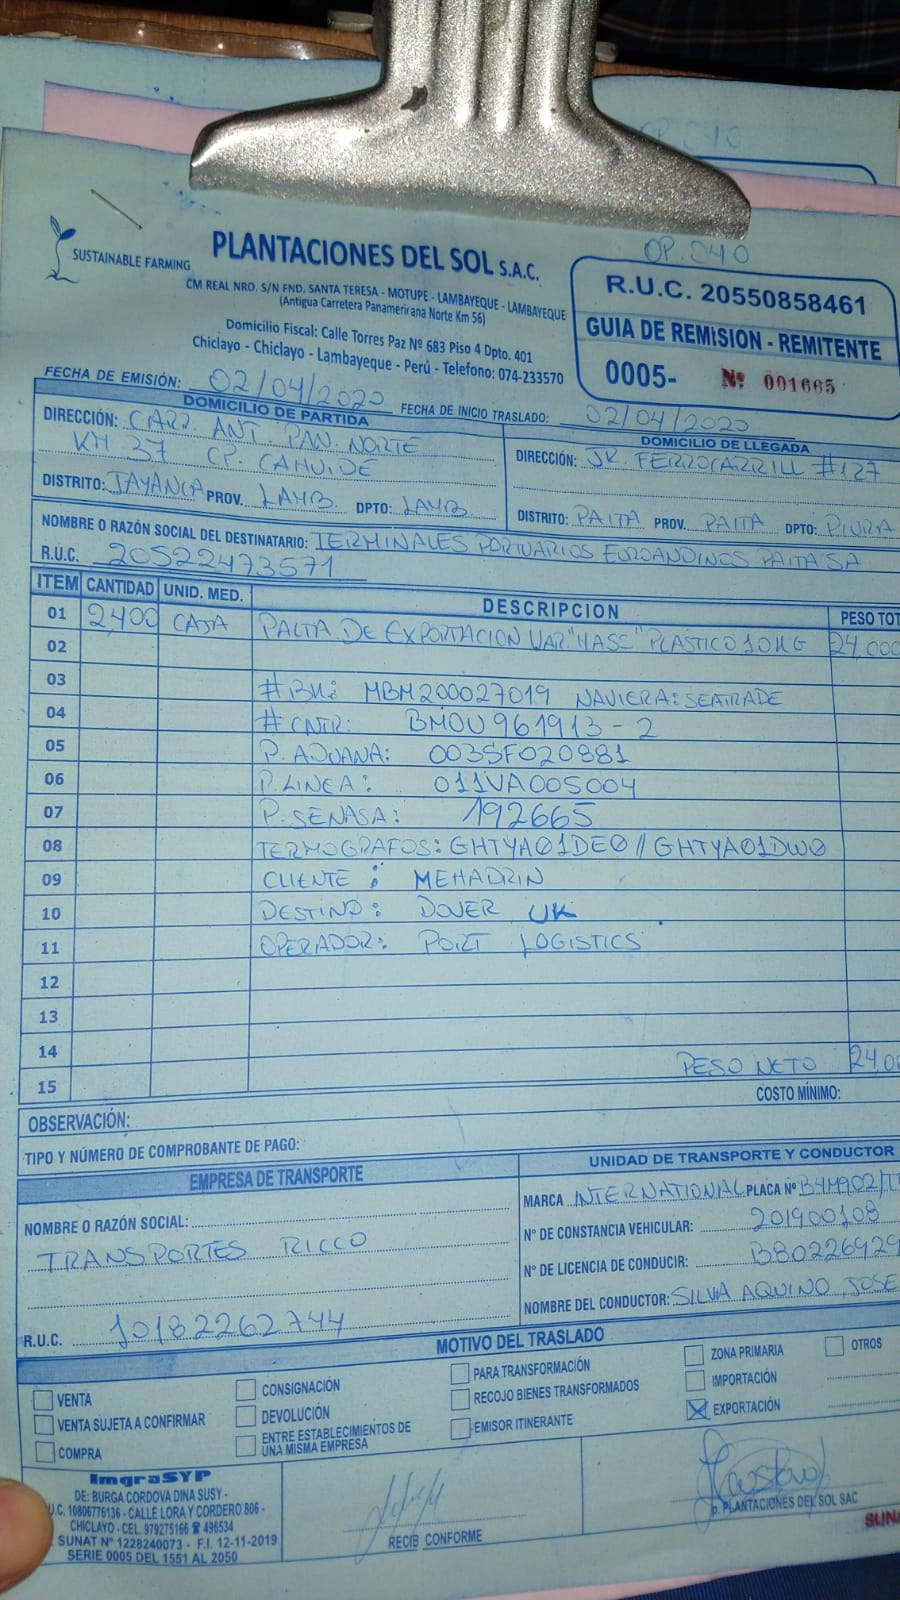 OP. 040
SUSTAINABLE FARMING
PLANTACIONES DEL SOL S.A.C.
CM REAL NRO. S/N FND. SANTA TERESA - MOTUPE - LAMBAYEQUE - LAMBAYEQUE
(Antigua Carretera Panamerirana Norte Km 56)
Domicilio Fiscal: Calle Torres Paz Nº 683 Piso 4 Dpto. 401
Chiclayo - Chiclayo - Lambayeque - Perú - Telefono: 074-233570
R.U.C. 20550858461
GUIA DE REMISION - REMITENTE
0005- Nº 001665
FECHA DE EMISIÓN: 02/04/2020 FECHA DE INICIO TRASLADO: 02/04/2020
DOMICILIO DE PARTIDA
DIRECCIÓN: CARR. ANT. PAN. NORTE
KM 37 CP. CAHUIDE
DISTRITO: JAYANCA PROV. LAMB. DPTO: LAMB.
DOMICILIO DE LLEGADA
DIRECCIÓN: JR. FERROCARRILL #127
DISTRITO: PAITA PROV. PAITA DPTO: PIURA
NOMBRE O RAZÓN SOCIAL DEL DESTINATARIO: TERMINALES PORTUARIOS EUROANDINOS PAITA SA
R.U.C. 20522473571
ITEM CANTIDAD UNID. MED. DESCRIPCION PESO TOT
01 2,400 CAJA PALTA DE EXPORTACION VAR."HASS" PLASTICO 10KG 24,000
02
03 #BK: MBM200027019 NAVIERA: SEATRADE
04 #CNTR: BMOU 961913-2
05 P. ADUANA: 003SF020881
06 P. LINEA: 011VA005004
07 P. SENASA: 192665
08 TERMOGRAFOS: GHTYA01DE0 // GHTYA01DW0
09 CLIENTE: MEHADRIN
10 DESTINO: DOVER UK
11 OPERADOR: PORT LOGISTICS
12
13
14 PESO NETO 24,0
15
COSTO MÍNIMO:
OBSERVACIÓN:
TIPO Y NÚMERO DE COMPROBANTE DE PAGO:
EMPRESA DE TRANSPORTE
NOMBRE O RAZÓN SOCIAL:
TRANSPORTES RICCO
R.U.C. 10182262744
UNIDAD DE TRANSPORTE Y CONDUCTOR
MARCA INTERNATIONAL PLACA Nº B4M902/T
Nº DE CONSTANCIA VEHICULAR: 201900108
Nº DE LICENCIA DE CONDUCIR: B80226929
NOMBRE DEL CONDUCTOR: SILVA AQUINO JOSE
MOTIVO DEL TRASLADO
VENTA
VENTA SUJETA A CONFIRMAR
COMPRA
CONSIGNACIÓN
DEVOLUCIÓN
ENTRE ESTABLECIMIENTOS DE
UNA MISMA EMPRESA
PARA TRANSFORMACIÓN
RECOJO BIENES TRANSFORMADOS
EMISOR ITINERANTE
ZONA PRIMARIA
IMPORTACIÓN
EXPORTACIÓN
OTROS
ImgraSYP
DE: BURGA CORDOVA DINA SUSY -
U.C. 10806776136 - CALLE LORA Y CORDERO 806 -
CHICLAYO - CEL. 979275166 ☎ 496534
SUNAT Nº 1228240073 - F.I. 12-11-2019
SERIE 0005 DEL 1551 AL 2050
RECIBI CONFORME
p. PLANTACIONES DEL SOL SAC
SUNA